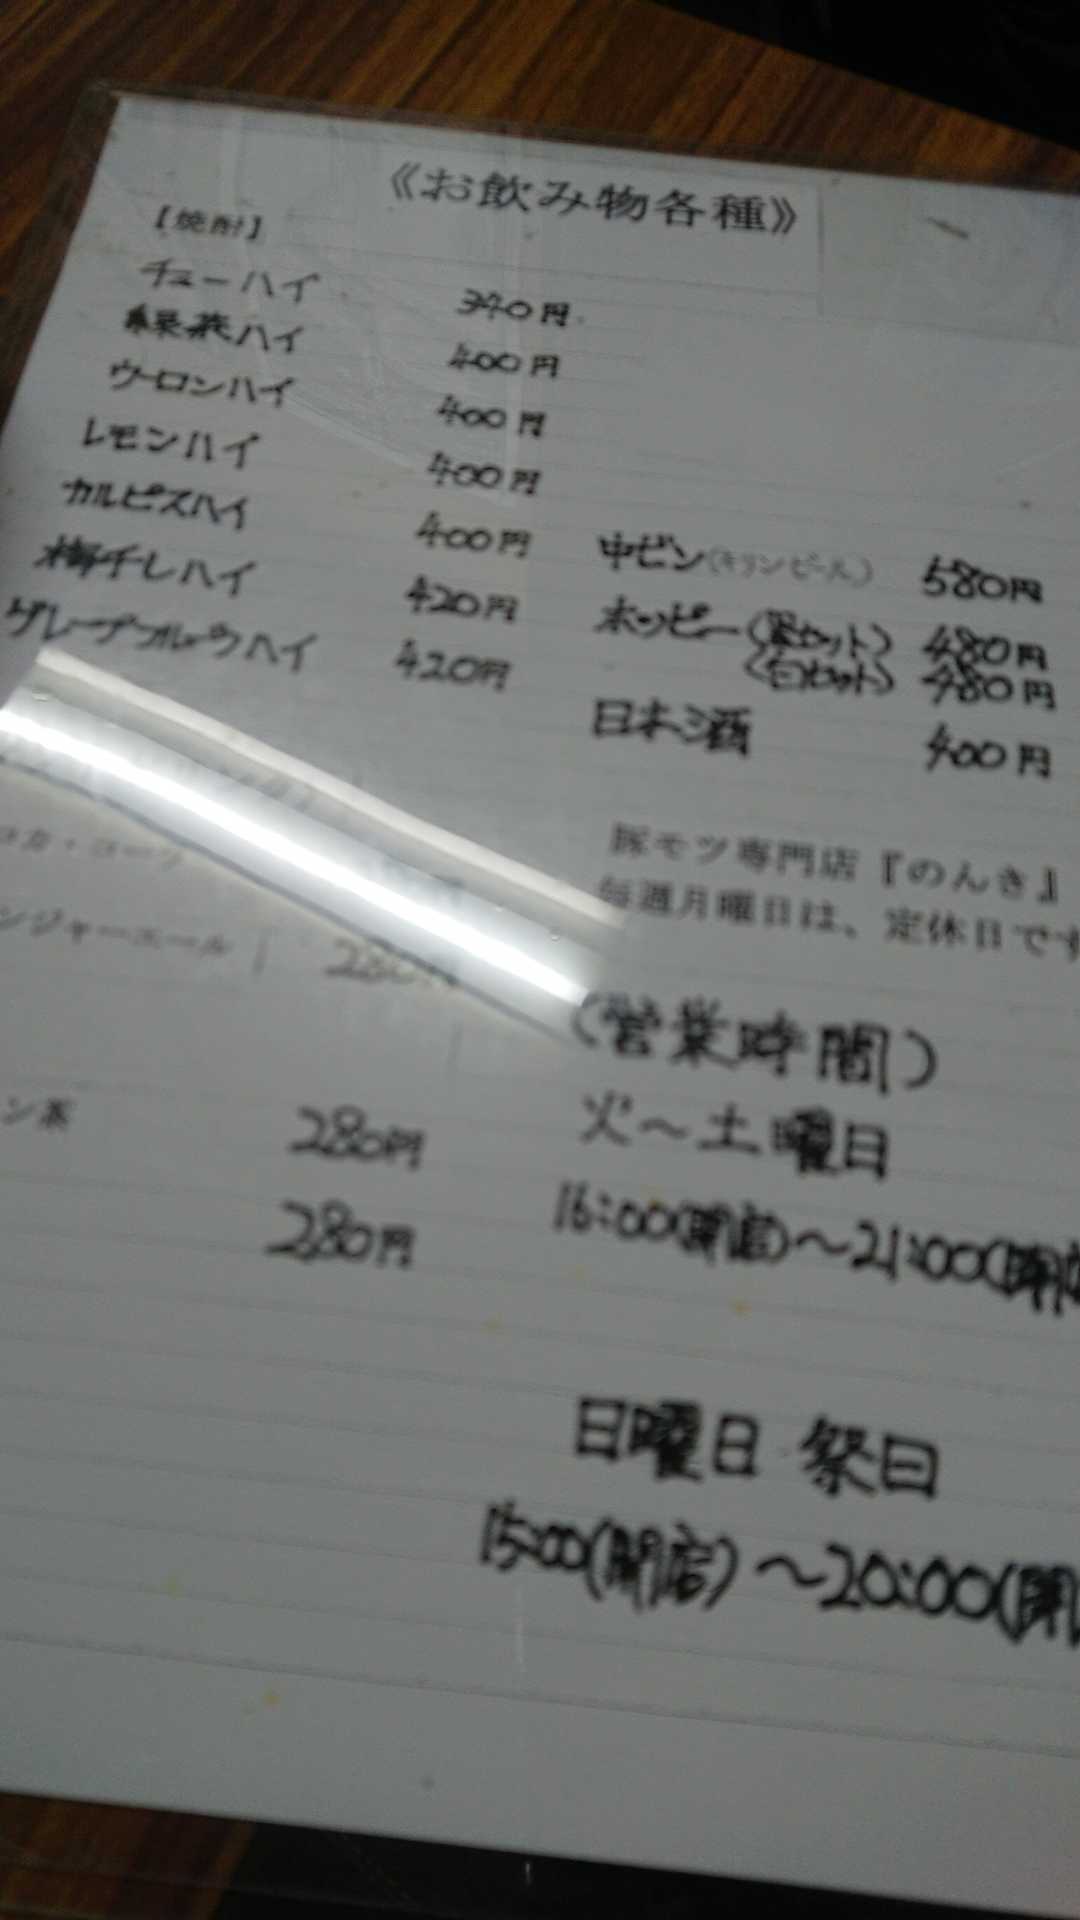 《お飲み物各種》
【焼酎】
チューハイ 370円
緑茶ハイ 400円
ウーロンハイ 400円
レモンハイ 400円
カルピスハイ 400円
梅干しハイ 420円
グレープフルーツハイ 420円
中ビン(キリンビール) 580円
ホッピー(黒セット) 480円
(白セット) 480円
日本酒 400円
コカ・コーラ
ンジャーエール 280円
ン茶 280円
280円
豚モツ専門店『のんき』
毎週月曜日は、定休日です
(営業時間)
火〜土曜日
16:00(開店)〜21:00(閉店
日曜日 祭日
15:00(開店)〜20:00(閉